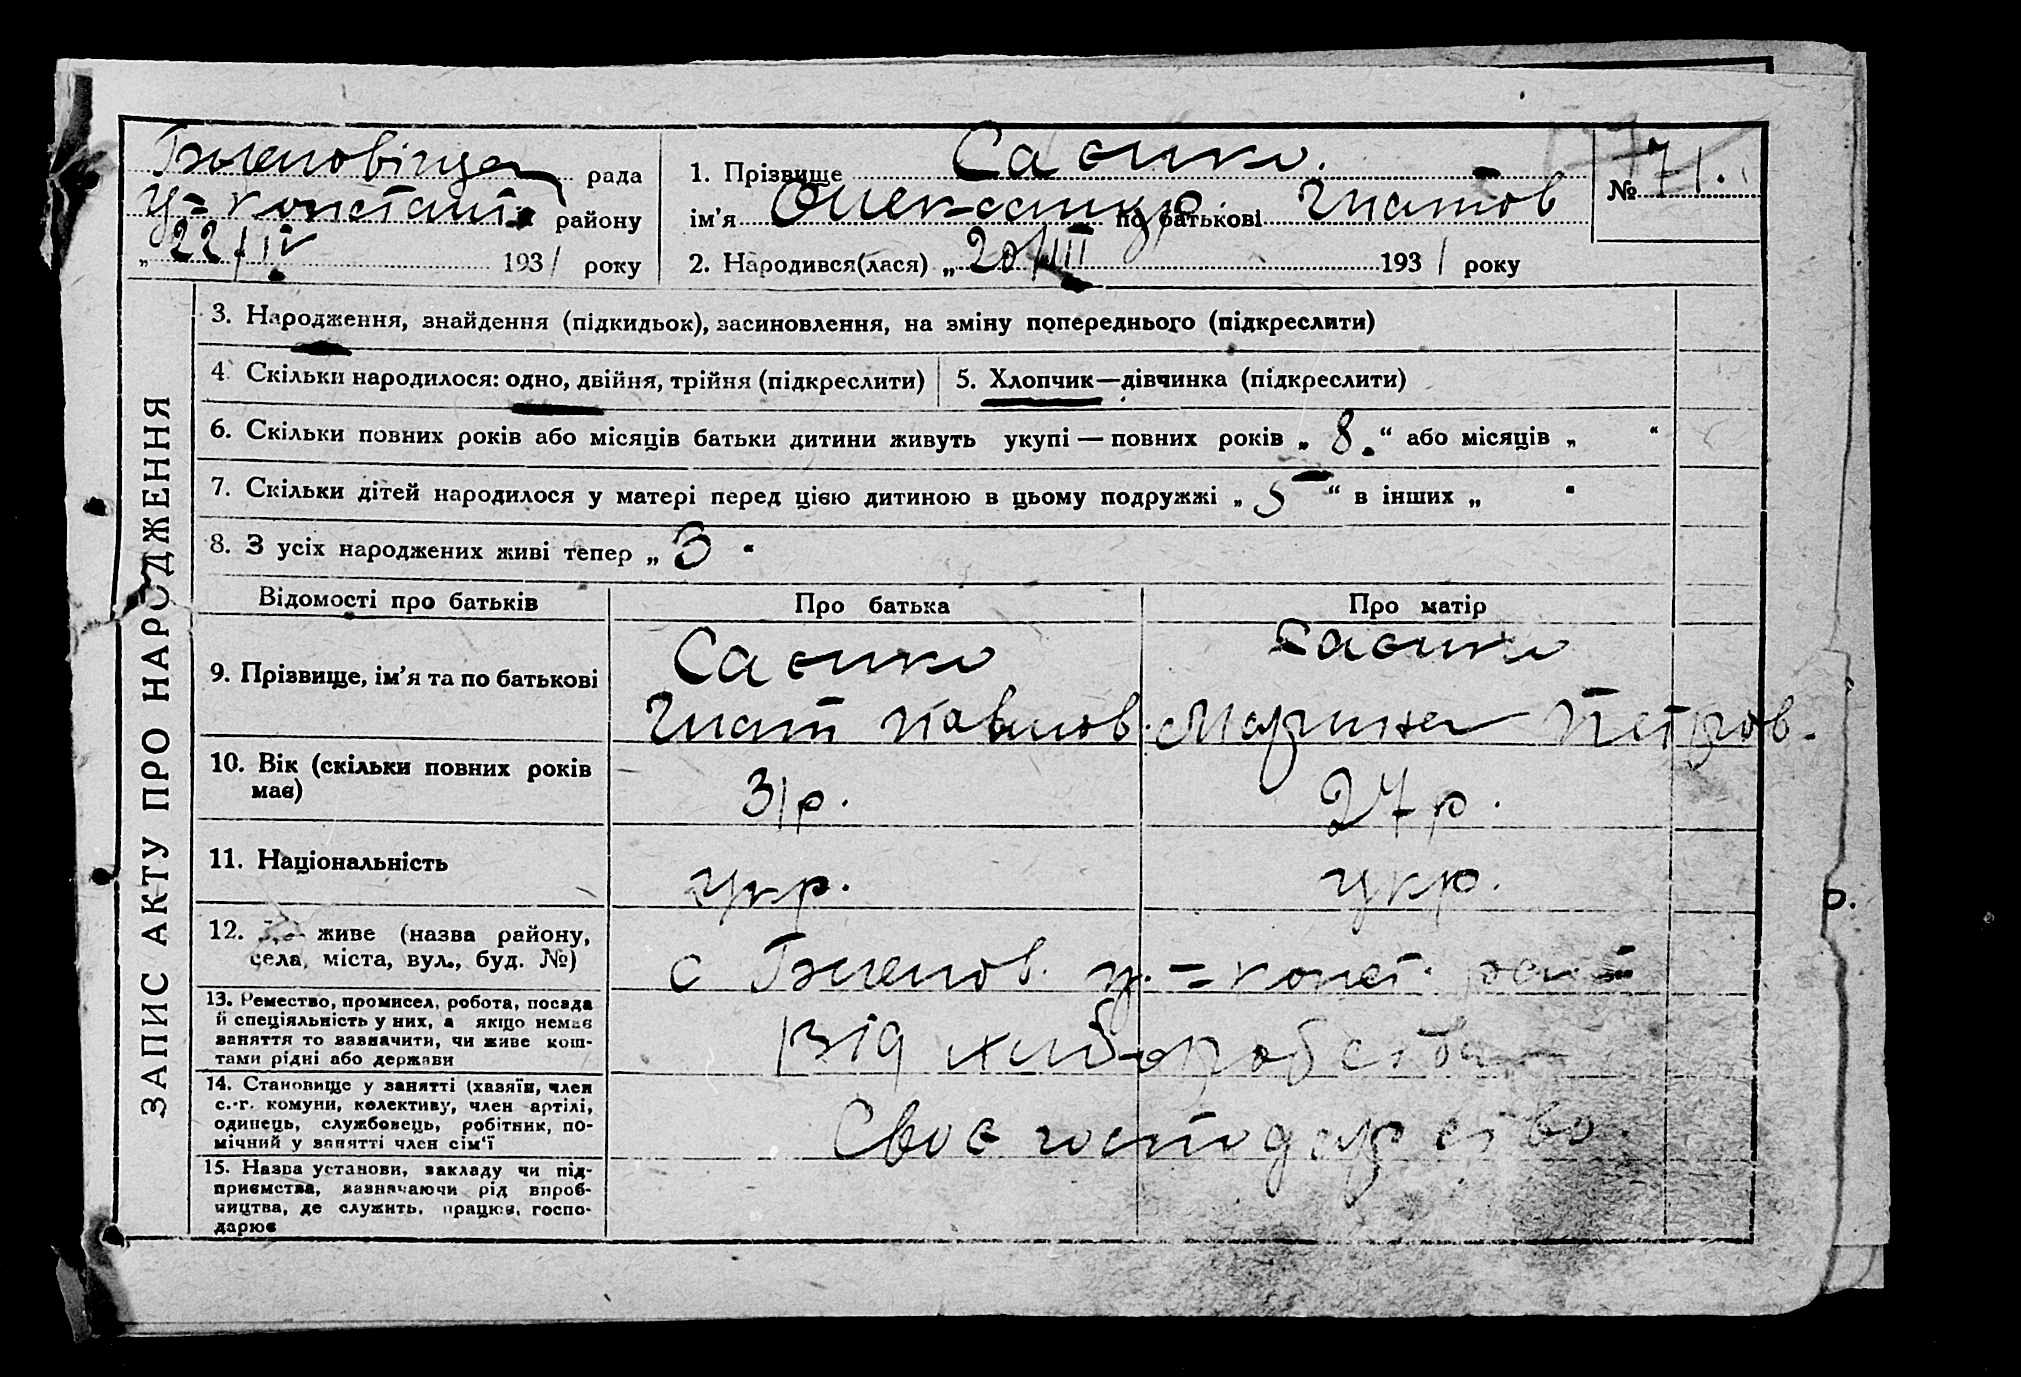 рада
У=Констант району
„22/IV 1931 року
1. Прізвище Саєнко.
ім’я Олександр. по батькові Гнатов
2. Народився(лася) „20/III 1931 року
№ 71.
ЗАПИС АКТУ ПРО НАРОДЖЕННЯ
3. Народження, знайдення (підкидьок), засиновлення, на зміну попереднього (підкреслити)
4. Скільки народилося: одно, двійня, трійня (підкреслити)
5. Хлопчик—дівчинка (підкреслити)
6. Скільки повних років або місяців батьки дитини живуть укупі — повних років „8.“ або місяців „ “
7. Скільки дітей народилося у матері перед цією дитиною в цьому подружжі „5“ в інших „ “
8. З усіх народжених живі тепер „3“
Відомості про батьків
Про батька
Про матір
9. Прізвище, ім’я та по батькові
Саєнко
Гнат Павлов.
Саєнко
Марина Петров.
10. Вік (скільки повних років
має)
31 р.
27 р.
11. Національність
укр.
укр.
12. живе (назва району,
села, міста, вул., буд. №)
с у.=конст.
13. Ремество, промисел, робота, посада
й спеціяльність у них, а якщо немає
заняття то зазначити, чи живе кош-
тами рідні або держави
Від хліборобства
14. Становище у занятті (хазяїн, член
с.-г. комуни, колективу, член артілі,
одинець, службовець, робітник, по-
мічний у занятті член сім’ї
Своє господарство.
15. Назва установи, закладу чи під-
приємства, зазначаючи рід вироб-
ництва, де служить, працює, госпо-
дарює